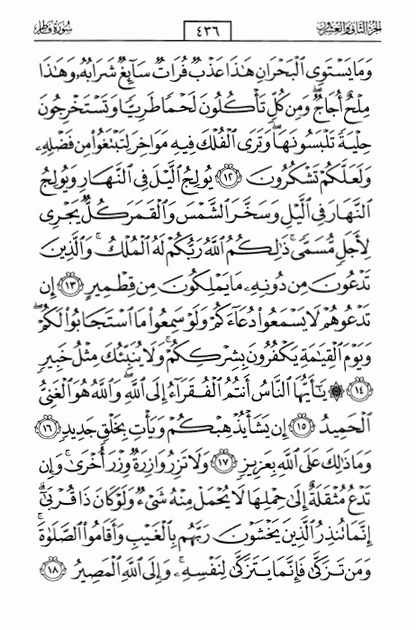 الجزء الثاني والعشرون ٤٣٦ سورة فاطر
وَمَا يَسْتَوِى ٱلْبَحْرَانِ هَٰذَا عَذْبٌ فُرَاتٌ سَآئِغٌ شَرَابُهُۥ وَهَٰذَا
مِلْحٌ أُجَاجٌ ۖ وَمِن كُلٍّ تَأْكُلُونَ لَحْمًا طَرِيًّا وَتَسْتَخْرِجُونَ
حِلْيَةً تَلْبَسُونَهَا ۖ وَتَرَى ٱلْفُلْكَ فِيهِ مَوَاخِرَ لِتَبْتَغُوا۟ مِن فَضْلِهِۦ
وَلَعَلَّكُمْ تَشْكُرُونَ ١٢ يُولِجُ ٱلَّيْلَ فِى ٱلنَّهَارِ وَيُولِجُ
ٱلنَّهَارَ فِى ٱلَّيْلِ وَسَخَّرَ ٱلشَّمْسَ وَٱلْقَمَرَ كُلٌّ يَجْرِى
لِأَجَلٍ مُّسَمًّى ۚ ذَٰلِكُمُ ٱللَّهُ رَبُّكُمْ لَهُ ٱلْمُلْكُ ۚ وَٱلَّذِينَ
تَدْعُونَ مِن دُونِهِۦ مَا يَمْلِكُونَ مِن قِطْمِيرٍ ١٣ إِن
تَدْعُوهُمْ لَا يَسْمَعُوا۟ دُعَآءَكُمْ وَلَوْ سَمِعُوا۟ مَا ٱسْتَجَابُوا۟ لَكُمْ ۖ
وَيَوْمَ ٱلْقِيَٰمَةِ يَكْفُرُونَ بِشِرْكِكُمْ ۚ وَلَا يُنَبِّئُكَ مِثْلُ خَبِيرٍ
١٤ ۞ يَٰٓأَيُّهَا ٱلنَّاسُ أَنتُمُ ٱلْفُقَرَآءُ إِلَى ٱللَّهِ ۖ وَٱللَّهُ هُوَ ٱلْغَنِىُّ
ٱلْحَمِيدُ ١٥ إِن يَشَأْ يُذْهِبْكُمْ وَيَأْتِ بِخَلْقٍ جَدِيدٍ ١٦
وَمَا ذَٰلِكَ عَلَى ٱللَّهِ بِعَزِيزٍ ١٧ وَلَا تَزِرُ وَازِرَةٌ وِزْرَ أُخْرَىٰ ۚ وَإِن
تَدْعُ مُثْقَلَةٌ إِلَىٰ حِمْلِهَا لَا يُحْمَلْ مِنْهُ شَىْءٌ وَلَوْ كَانَ ذَا قُرْبَىٰٓ ۗ
إِنَّمَا تُنذِرُ ٱلَّذِينَ يَخْشَوْنَ رَبَّهُم بِٱلْغَيْبِ وَأَقَامُوا۟ ٱلصَّلَوٰةَ ۚ
وَمَن تَزَكَّىٰ فَإِنَّمَا يَتَزَكَّىٰ لِنَفْسِهِۦ ۚ وَإِلَى ٱللَّهِ ٱلْمَصِيرُ ١٨